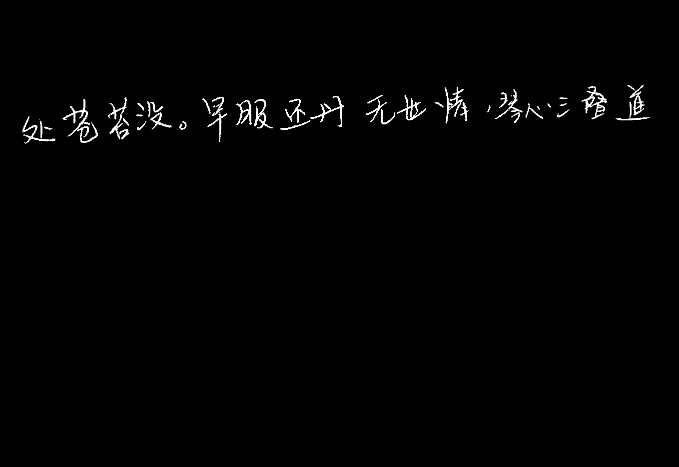 处苍苔没。早服还丹无世情,琴心三叠道